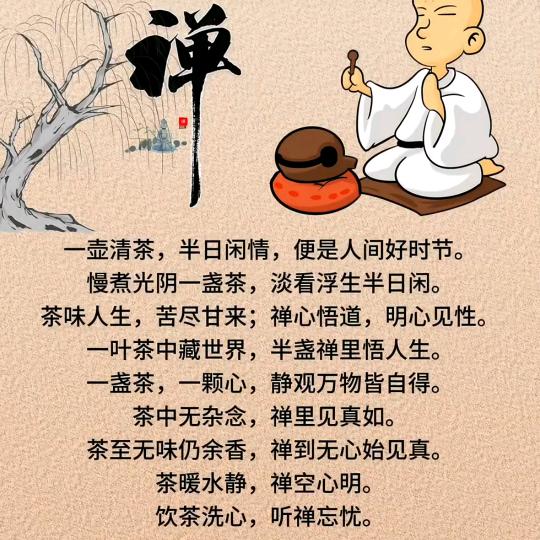 禅
一壶清茶，半日闲情，便是人间好时节。
慢煮光阴一盏茶，淡看浮生半日闲。
茶味人生，苦尽甘来；禅心悟道，明心见性。
一叶茶中藏世界，半盏禅里悟人生。
一盏茶，一颗心，静观万物皆自得。
茶中无杂念，禅里见真如。
茶至无味仍余香，禅到无心始见真。
茶暖水静，禅空心明。
饮茶洗心，听禅忘忧。